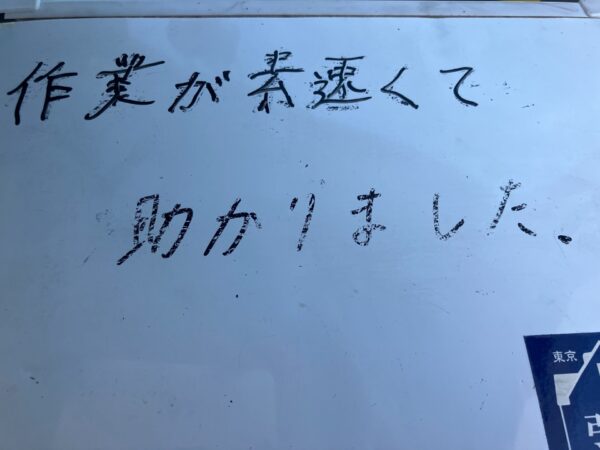 作業が素速くて
助かりました。
東京